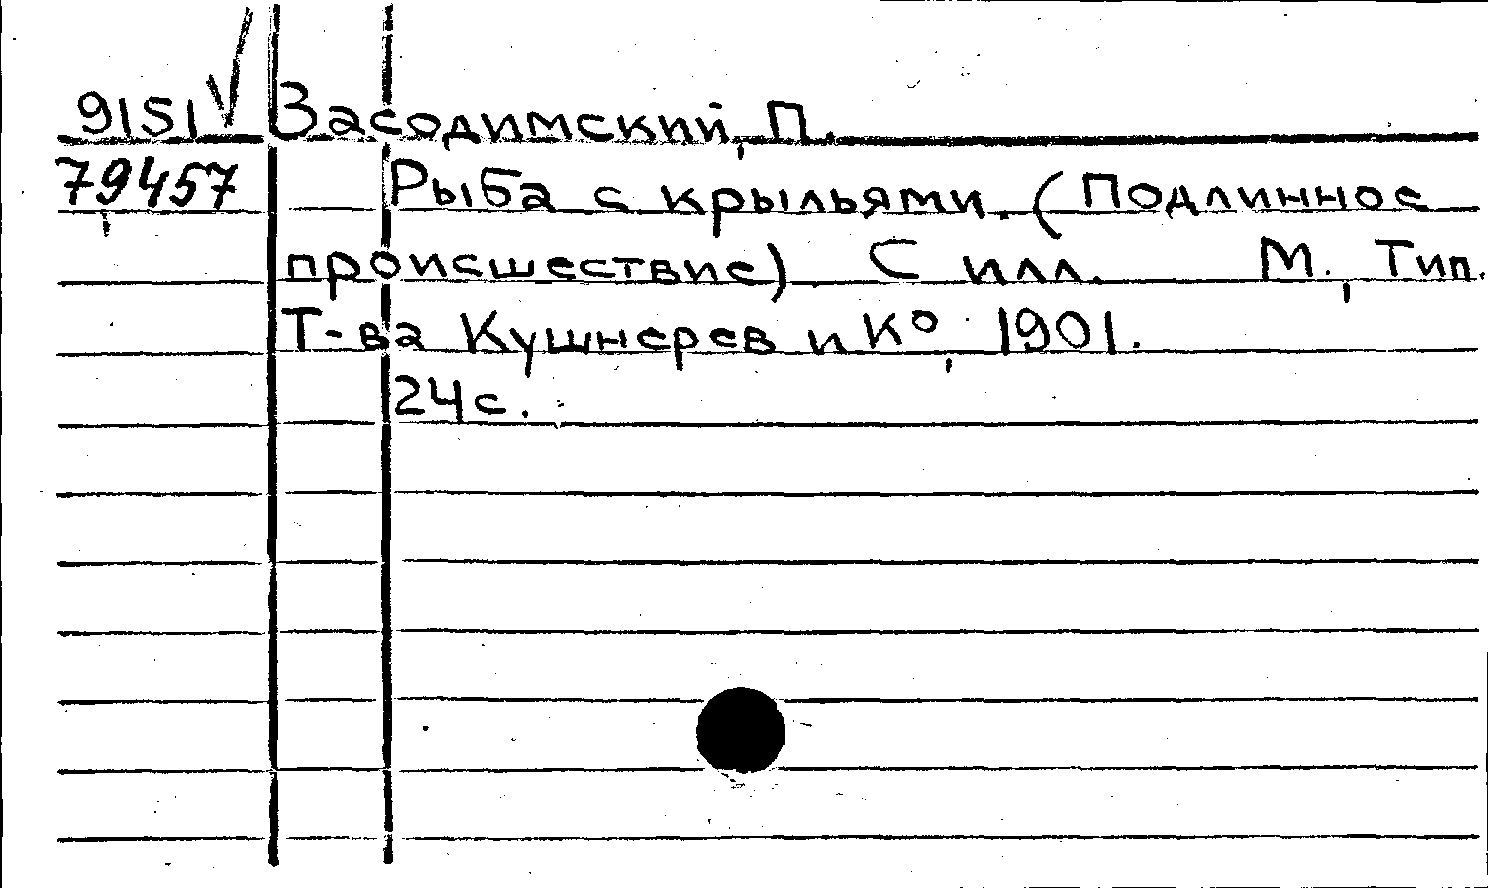 9151 Засодимский, П.
79457 Рыба с крыльями. (Подлинное
происшествие) С илл. М., Тип.
Т-ва Кушнерев и К°, 1901.
24 с.